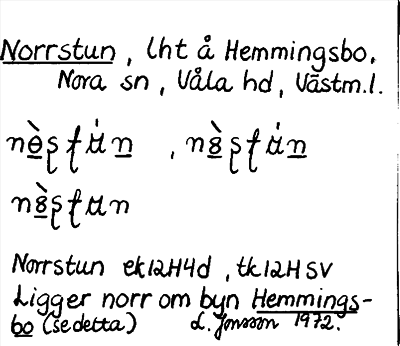 Norrstun, lht å Hemmingsbo,
Nora sn, Våla hd, Västm.l.
Norrstun ek12H4d, tk12HSV
Ligger norr om byn Hemmings-
bo (se detta) L. Jonsson 1972.